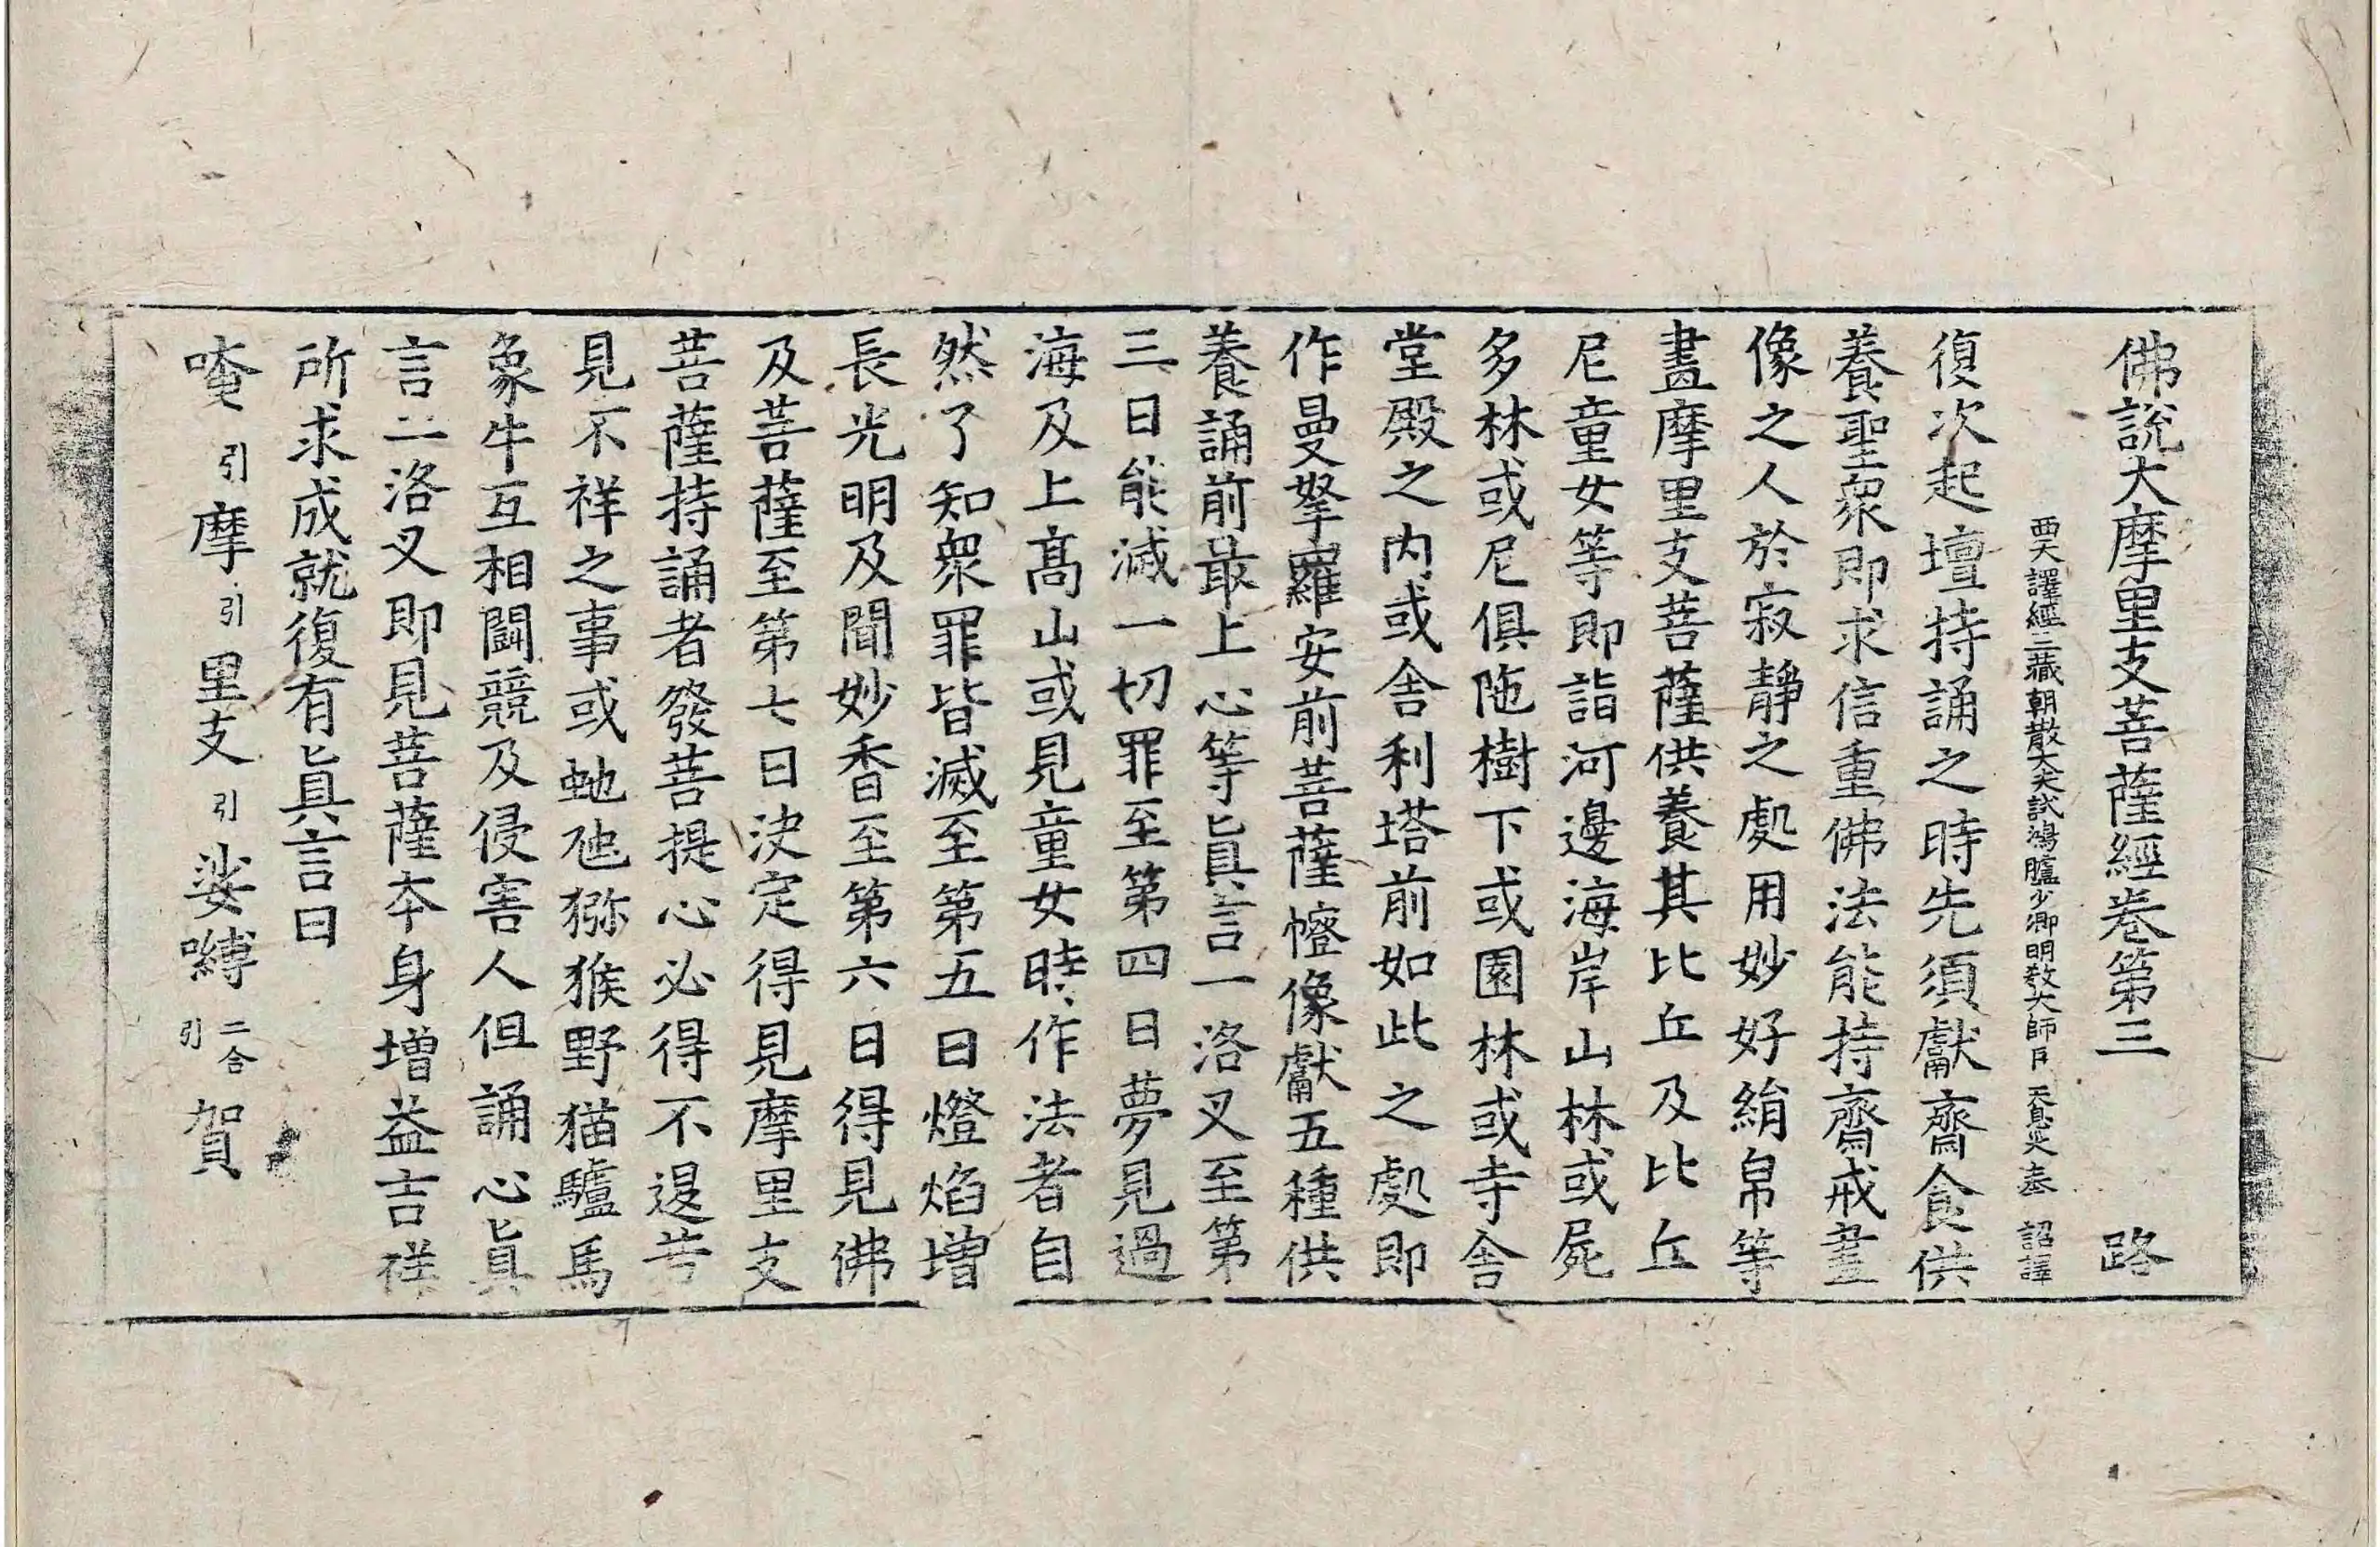 佛說大摩里支菩薩經卷第三 路
西天譯經三藏朝散大夫試鴻臚少卿明教大師臣 天息災奉 詔譯
復次起壇持誦之時先須獻齋食供
養聖衆即求信重佛法能持齋戒畫
像之人於寂靜之處用妙好絹帛等
畫摩里支菩薩供養其比丘及比丘
尼童女等即詣河邊海岸山林或屍
多林或尼俱陁樹下或園林或寺舍
堂殿之內或舍利塔前如此之處即
作曼拏羅安前菩薩㡧像獻五種供
養誦前最上心等眞言一洛叉至第
三日能滅一切罪至第四日夢見過
海及上高山或見童女時作法者自
然了知衆罪皆滅至第五日燈焰增
長光明及聞妙香至第六日得見佛
及菩薩至第七日決定得見摩里支
菩薩持誦者發菩提心必得不退若
見不祥之事或虵虺猕猴野猫驢馬
象牛互相鬪競及侵害人但誦心眞
言二洛叉即見菩薩本身增益吉祥
所求成就復有眞言曰
唵引摩引里支引娑嚩二合引賀